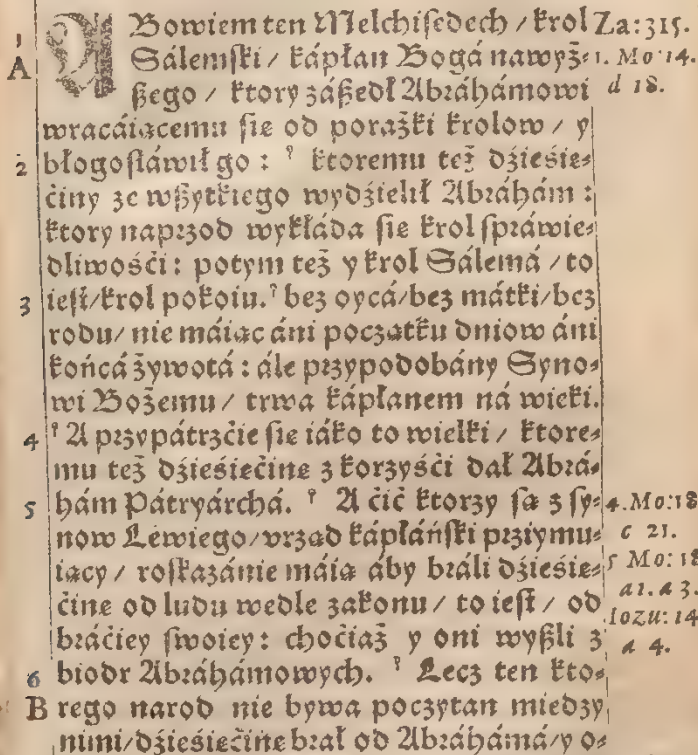 1 ABowiem ten Melchisedech / krol Za: 315.
A Sálemski / kápłan Bogá nawyż- 1. Mo 14.
ßego / ktory záßedł Abráhámowi d 18.
wracáiącemu sie od porażki krolow / y
2 błogosłáwił go : ktoremu też dźieśie-
ćiny ze wßytkiego wydźielił Abráhám :
ktory naprzod wykłáda sie krol spráwie-
dliwośći : potym też y krol Sálemá / to
3 iest / krol pokoiu. bez oycá / bez mátki / bez
rodu / nie máiąc áni początku dniow áni
końcá żywotá : ále przypodobány Syno-
wi Bożemu / trwa kápłanem ná wieki.
4 A przypátrzćie sie iáko to wielki / ktore-
mu też dźieśięćinę z korzyśći dał Abrá-
5 hám Pátryárchá. A ćić ktorzy są z sy- 4. Mo: 18
now Lewiego / vrząd kápłáński prziymu- c 21.
iący / roskazánie máią aby bráli dźieśię- 5 Mo: 18
ćinę od ludu wedle zakonu / to iest / od a1. a 3.
bráćiey swoiey : choćiaż y oni wyßli z Iozu: 14
a 4.
6 biodr Abráhámowych. Lecz ten kto-
B rego narod nie bywa poczytan miedzy
nimi / dźieśięćinę brał od Abráhámá / y o-